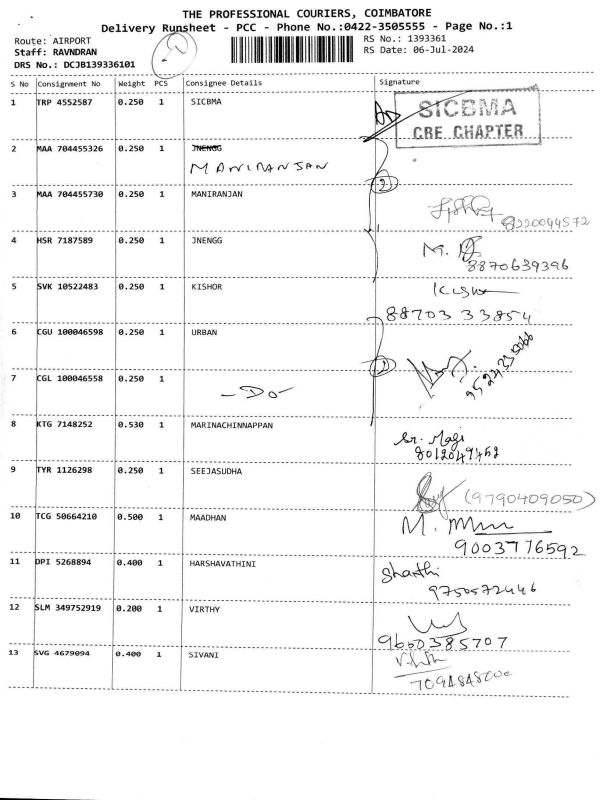 THE PROFESSIONAL COURIERS, COIMBATORE
Delivery Runsheet - PCC - Phone No.:0422-3505555 - Page No.:1
Route: AIRPORT
RS No.: 1393361
Staff: RAVNDRAN
RS Date: 06-Jul-2024
DRS No.: DCJB139336101
S No Consignment No Weight PCS Consignee Details Signature
1 TRP 4552587 0.250 1 SICBMA
SICBMA
CRE CHAPTER
2 MAA 704455326 0.250 1 JNENGG
MANIRANJAN
2
3 MAA 704455730 0.250 1 MANIRANJAN
8220044572
4 HSR 7187589 0.250 1 JNENGG
8870639396
5 SVK 10522483 0.250 1 KISHOR
88703 33854
6 CGU 100046598 0.250 1 URBAN
7 CGL 100046558 0.250 1
-Do-
8 KTG 7148252 0.530 1 MARINACHINNAPPAN
8012049452
9 TYR 1126298 0.250 1 SEEJASUDHA
(9790409050)
10 TCG 50664210 0.500 1 MAADHAN
9003776592
11 DPI 5268894 0.400 1 HARSHAVATHINI
Sharthi
9750572446
12 SLM 349752919 0.200 1 VIRTHY
9660385707
13 SVG 4679094 0.400 1 SIVANI